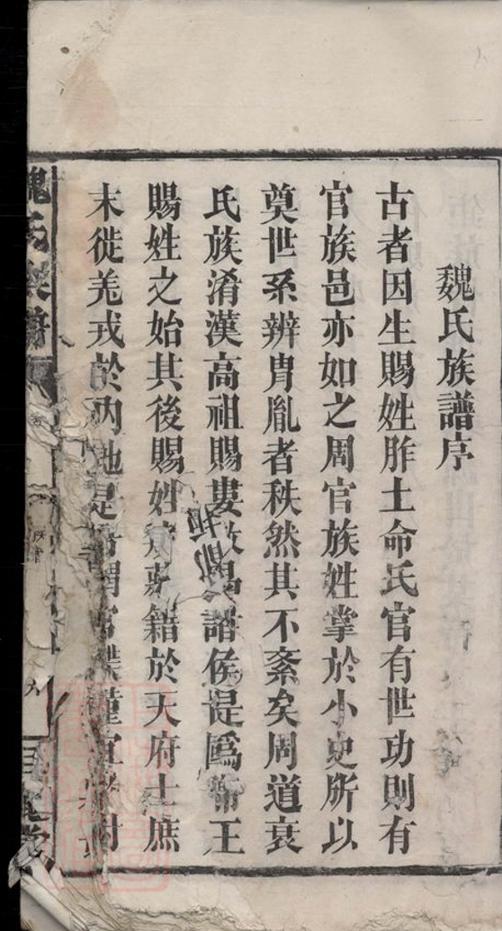 魏氏族譜序
古者因生賜姓胙土命氏官有世功則有
官族邑亦如之周官族姓掌於小史所以
奠世系辨胄胤者秩然其不紊矣周道衰
氏族淆漢高祖賜婁 諸侯是爲帝王
賜姓之始其後賜姓 籍於天府士庶
末徙羌戎於內地是
魏氏族譜